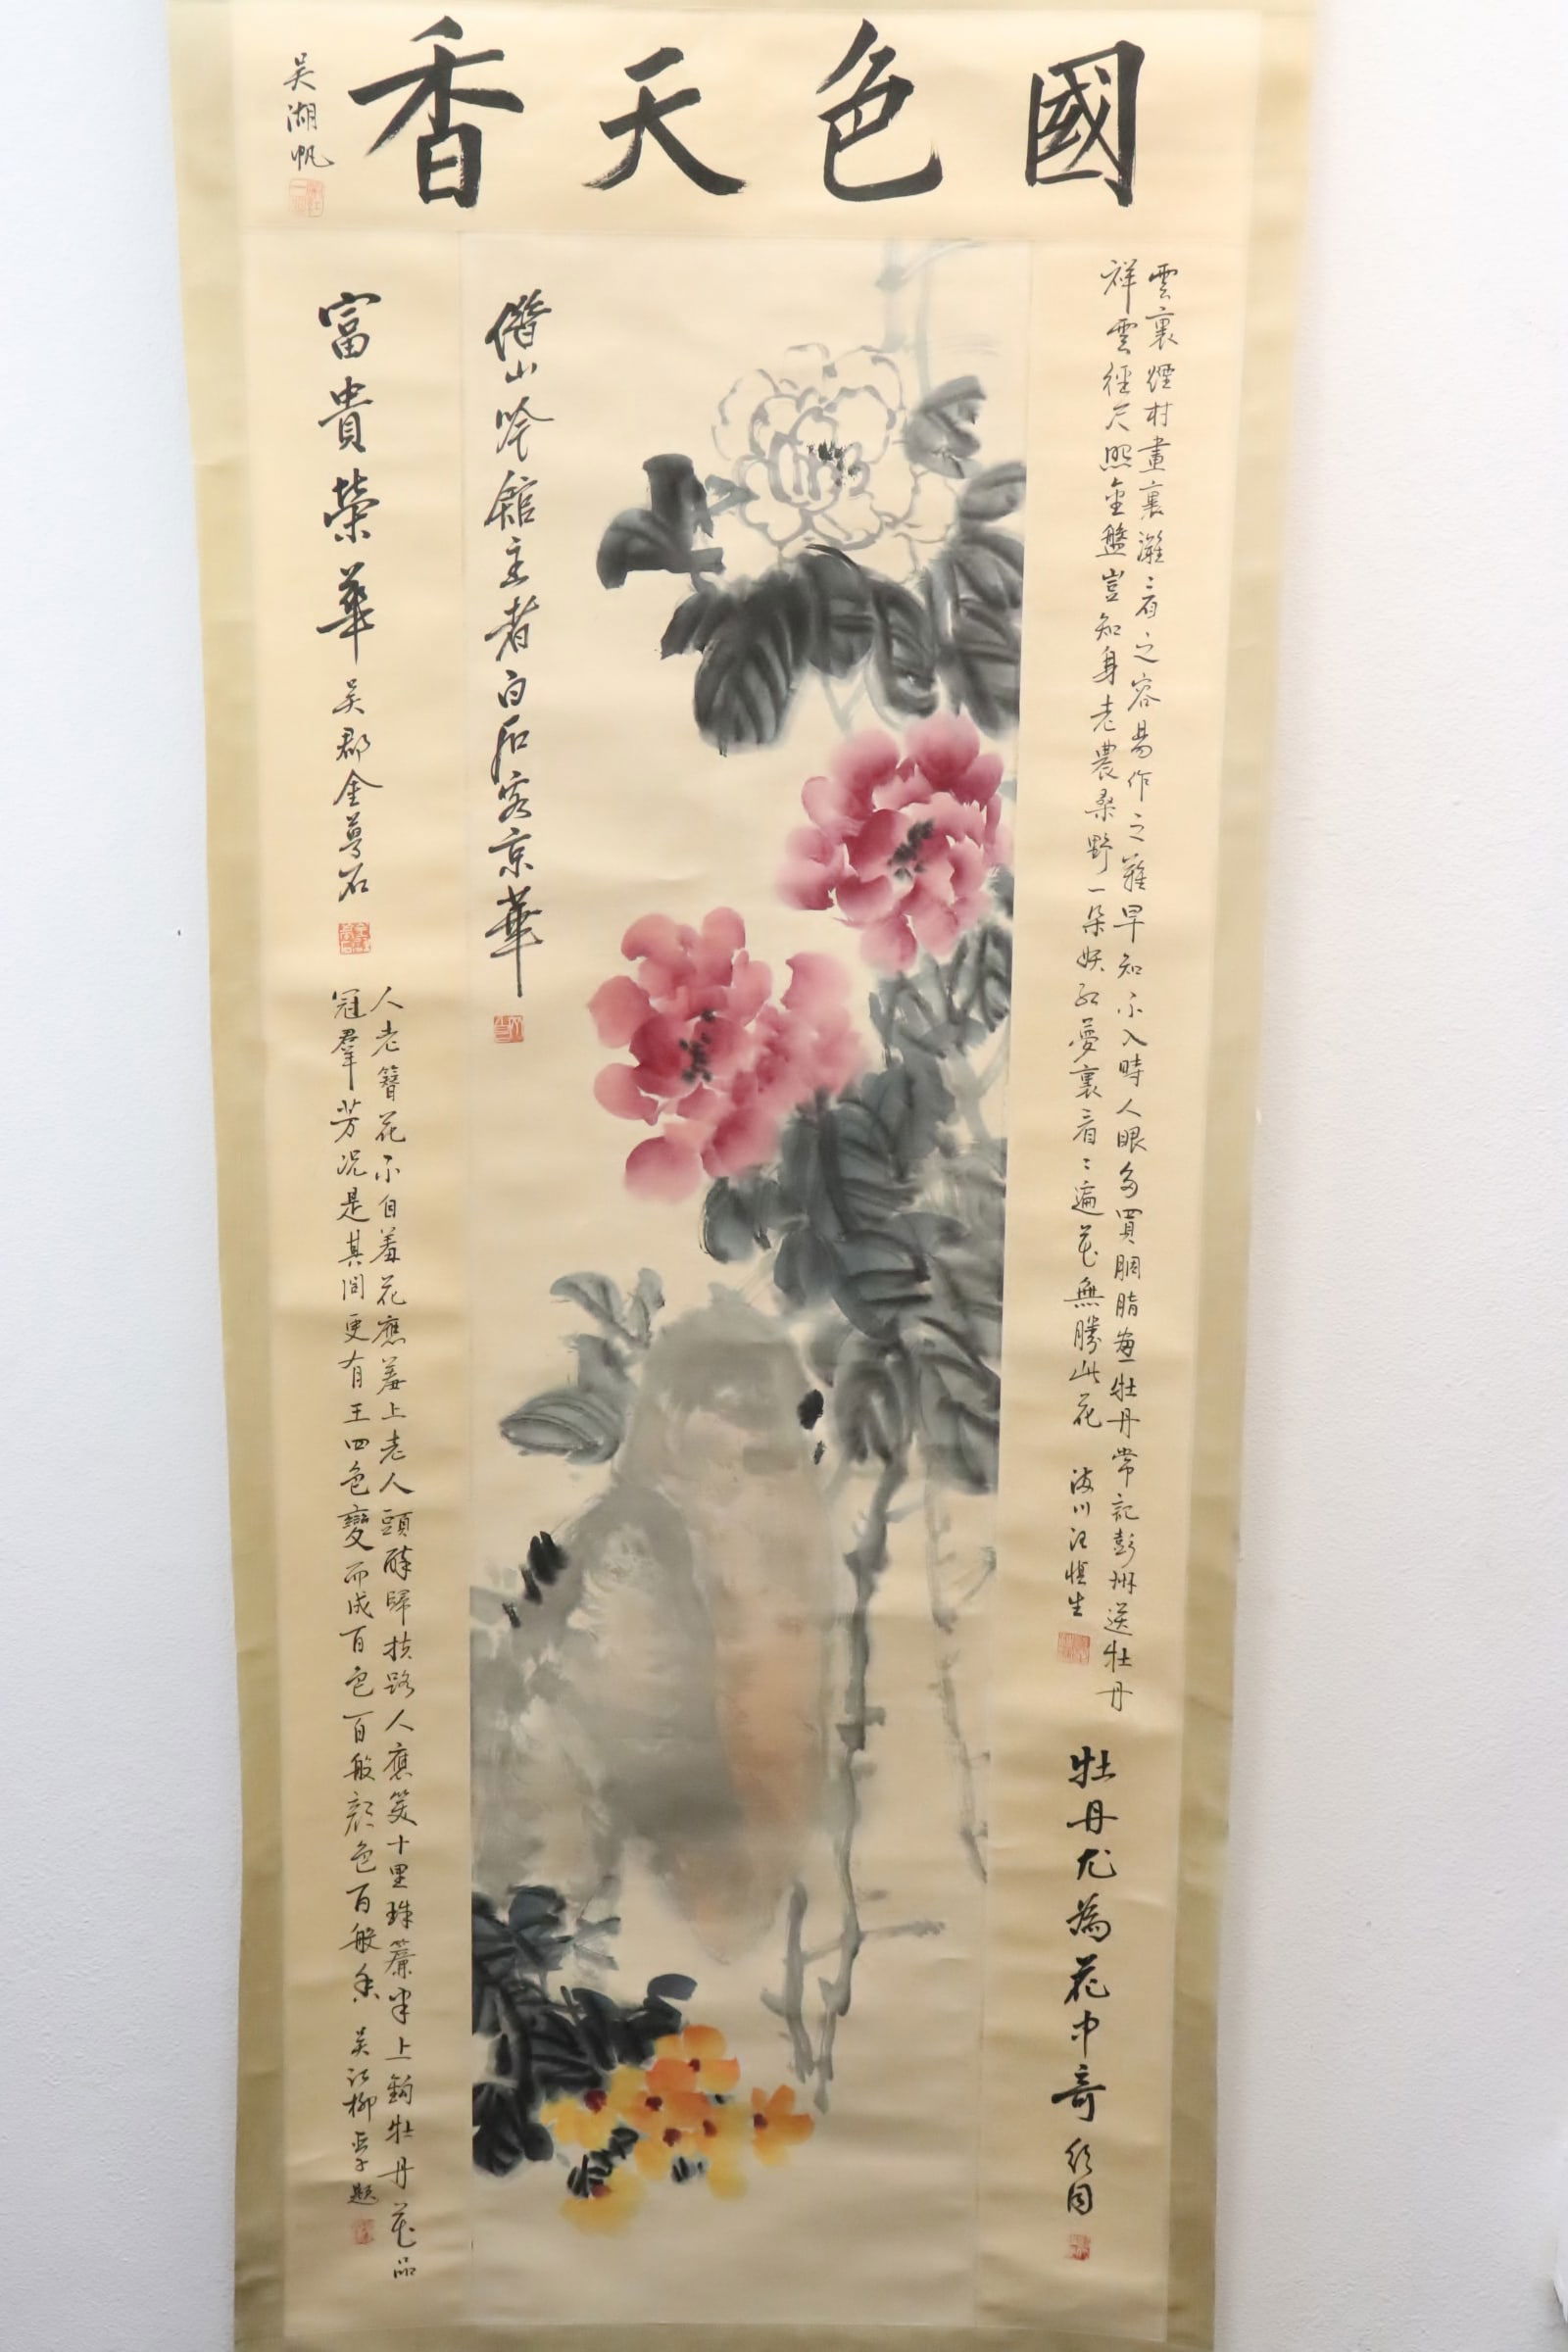 國色天香
吳湖帆
雲裏煙村畫裏灘看之容易作之難早知不入時人眼多買胭脂畫牡丹常記彭州送牡丹
祥雲徑尺照金盤豈知身老農桑野一朵妖紅夢裏看看遍花無勝此花
汪慎生
牡丹尤為花中奇
借山吟館主者白石客京華
富貴榮華
吳郡金夢石
人老簪花不自羞花應羞上老人頭醉歸扶路人應笑十里珠簾半上鉤牡丹花品
冠羣芳況是其間更有王四色變而成百色百般顏色百般香
吳江柳亞子題